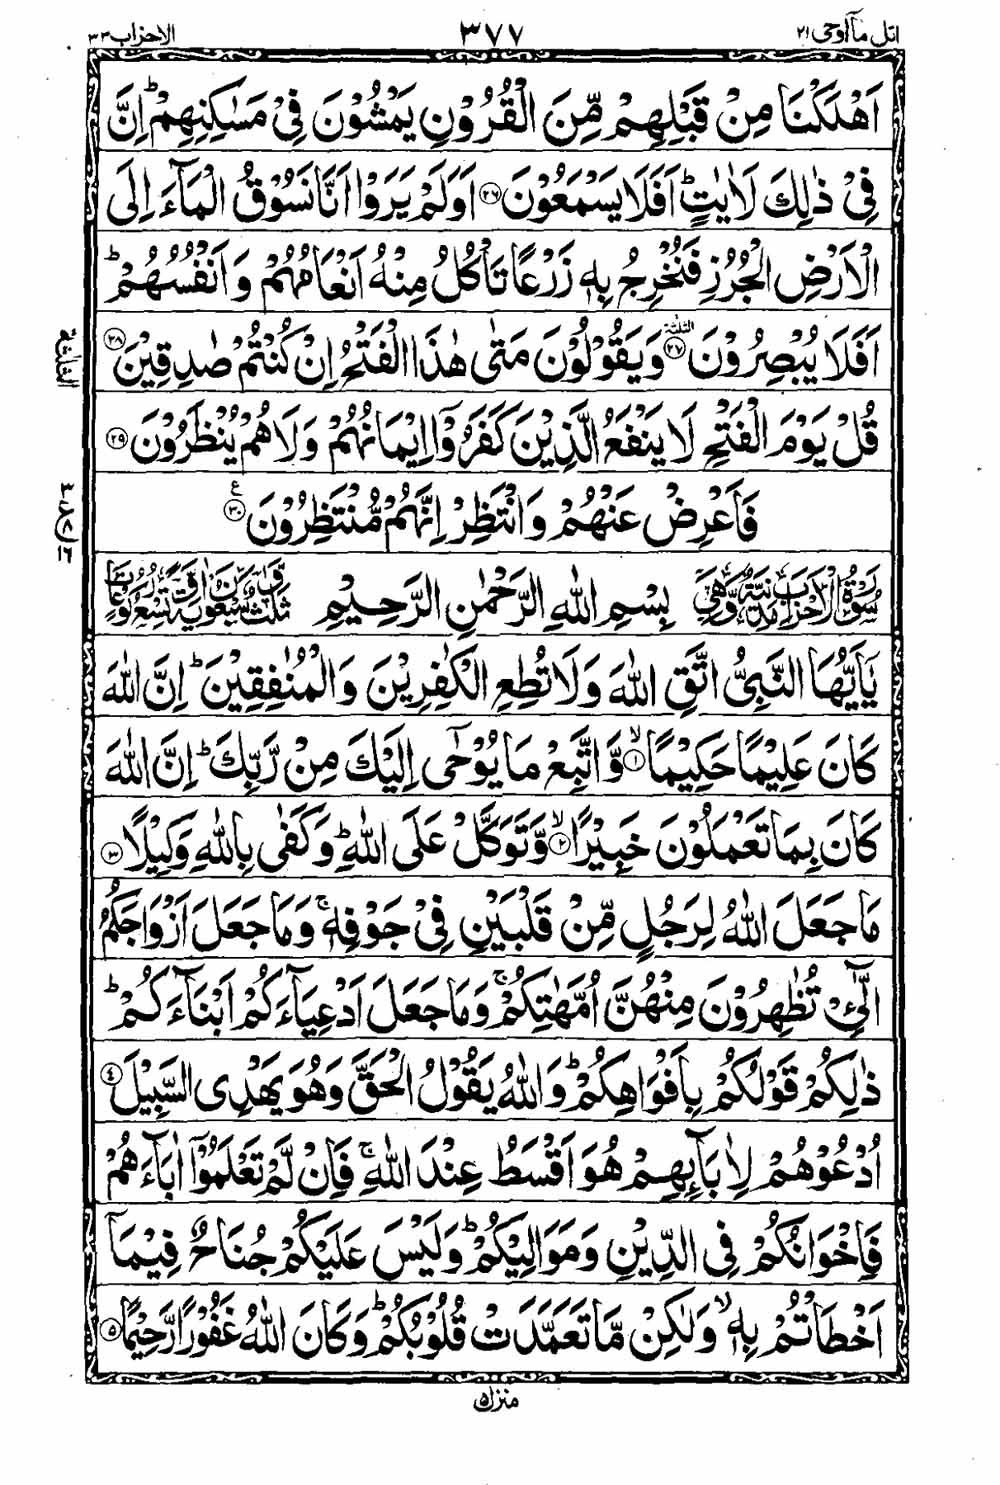 اتل مآ اوحی ٢١
٣٧٧
الاحزاب ٣٣
اَهْلَكْنَا مِنْ قَبْلِهِمْ مِّنَ الْقُرُوْنِ يَمْشُوْنَ فِيْ مَسٰكِنِهِمْ ؕ اِنَّ
فِيْ ذٰلِكَ لَاٰيٰتٍ ؕ اَفَلَا يَسْمَعُوْنَ ﴿٢٦﴾ اَوَلَمْ يَرَوْا اَنَّا نَسُوْقُ الْمَآءَ اِلَى
الْاَرْضِ الْجُرُزِ فَنُخْرِجُ بِهٖ زَرْعًا تَاْكُلُ مِنْهُ اَنْعَامُهُمْ وَاَنْفُسُهُمْ ؕ
اَفَلَا يُبْصِرُوْنَ ﴿٢٧﴾ الثلثة وَيَقُوْلُوْنَ مَتٰى هٰذَا الْفَتْحُ اِنْ كُنْتُمْ صٰدِقِيْنَ ﴿٢٨﴾
الثلثة
قُلْ يَوْمَ الْفَتْحِ لَا يَنْفَعُ الَّذِيْنَ كَفَرُوْٓا اِيْمَانُهُمْ وَلَا هُمْ يُنْظَرُوْنَ ﴿٢٩﴾
فَاَعْرِضْ عَنْهُمْ وَانْتَظِرْ اِنَّهُمْ مُّنْتَظِرُوْنَ ﴿٣٠﴾ ع
٣
٨
١٦
سُوْرَةُ الْاَحْزَابِ مَدَنِيَّةٌ وَّهِيَ بِسْمِ اللهِ الرَّحْمٰنِ الرَّحِيْمِ ثَلٰثٌ وَّسَبْعُوْنَ اٰيَةً وَّتِسْعُ رُكُوْعَاتٍ
يٰٓاَيُّهَا النَّبِيُّ اتَّقِ اللهَ وَلَا تُطِعِ الْكٰفِرِيْنَ وَالْمُنٰفِقِيْنَ ؕ اِنَّ اللهَ
كَانَ عَلِيْمًا حَكِيْمًا ﴿١﴾ۙ وَّاتَّبِعْ مَا يُوْحٰٓى اِلَيْكَ مِنْ رَّبِّكَ ؕ اِنَّ اللهَ
كَانَ بِمَا تَعْمَلُوْنَ خَبِيْرًا ﴿٢﴾ۙ وَّتَوَكَّلْ عَلَى اللهِ ؕ وَكَفٰى بِاللهِ وَكِيْلًا ﴿٣﴾
مَا جَعَلَ اللهُ لِرَجُلٍ مِّنْ قَلْبَيْنِ فِيْ جَوْفِهٖ ۚ وَمَا جَعَلَ اَزْوَاجَكُمُ
الّٰٓـِٔيْ تُظٰهِرُوْنَ مِنْهُنَّ اُمَّهٰتِكُمْ ۚ وَمَا جَعَلَ اَدْعِيَآءَكُمْ اَبْنَآءَكُمْ ؕ
ذٰلِكُمْ قَوْلُكُمْ بِاَفْوَاهِكُمْ ؕ وَاللهُ يَقُوْلُ الْحَقَّ وَهُوَ يَهْدِى السَّبِيْلَ ﴿٤﴾
اُدْعُوْهُمْ لِاٰبَآئِهِمْ هُوَ اَقْسَطُ عِنْدَ اللهِ ۚ فَاِنْ لَّمْ تَعْلَمُوْٓا اٰبَآءَهُمْ
فَاِخْوَانُكُمْ فِى الدِّيْنِ وَمَوَالِيْكُمْ ؕ وَلَيْسَ عَلَيْكُمْ جُنَاحٌ فِيْمَآ
اَخْطَاْتُمْ بِهٖ ۙ وَلٰكِنْ مَّا تَعَمَّدَتْ قُلُوْبُكُمْ ؕ وَكَانَ اللهُ غَفُوْرًا رَّحِيْمًا ﴿٥﴾
منزل ٥